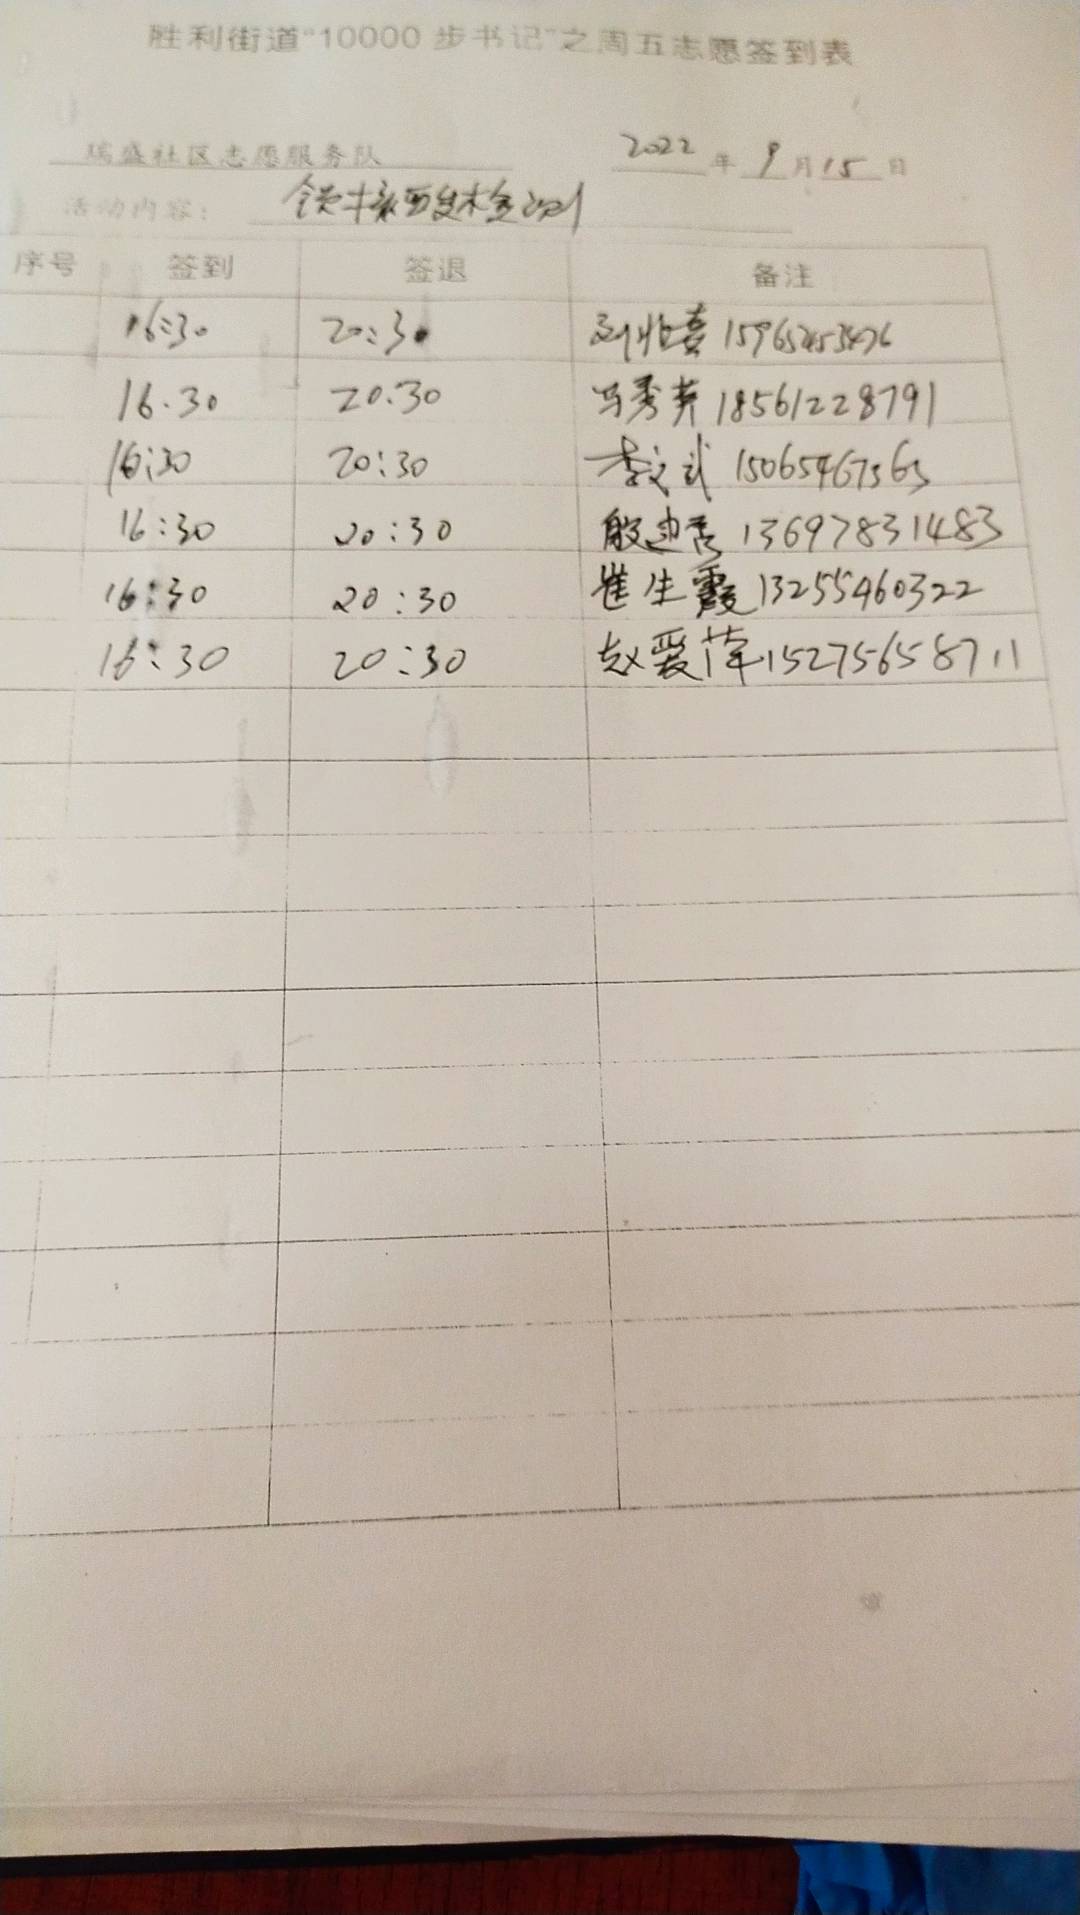 胜利街道"10000步书记"之周五志愿签到表
瑞盛社区志愿服务队 2022年9月15日
活动内容：全员核酸检测
序号 签到 签退 备注
16:30 20:30
16:30 20:30 马秀英 18561228791
16:30 20:30 李文武
16:30 20:30 13697831483
16:30 20:30 崔生霞 13255460322
16:30 20:30 赵爱萍 15275658711